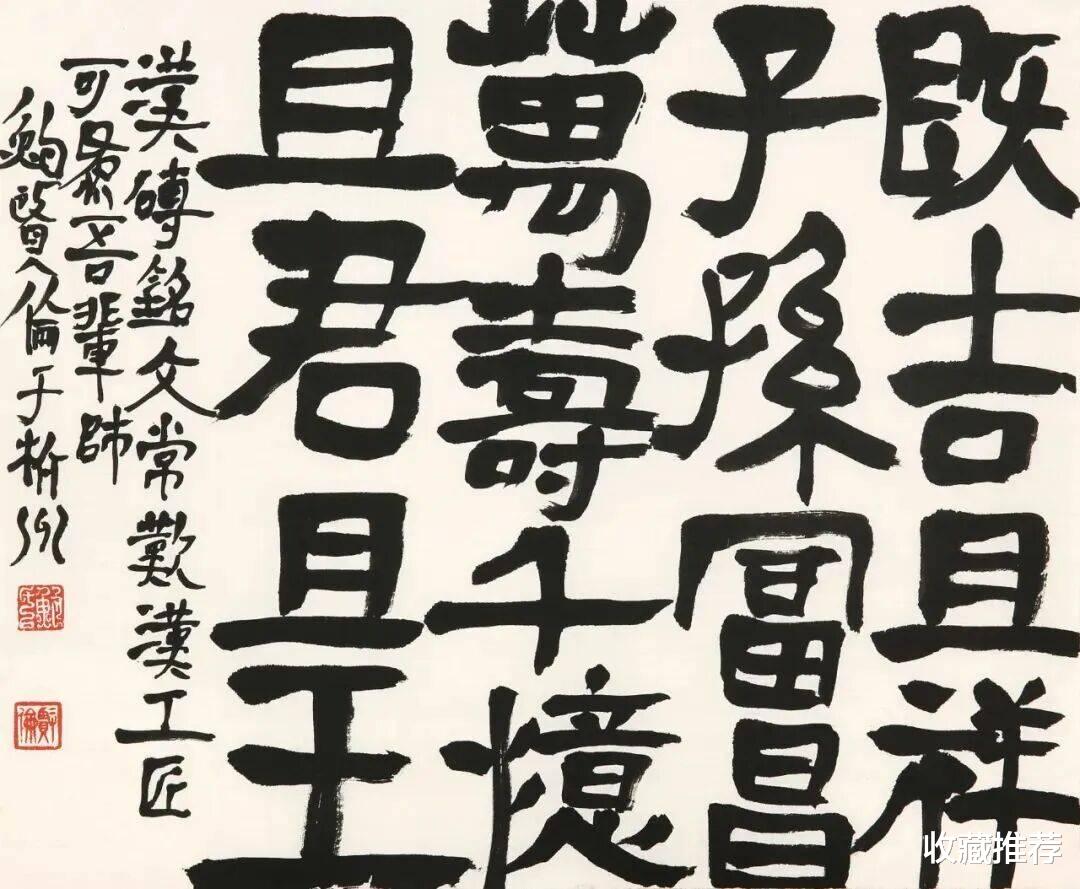 既吉且祥
子孫冨昌
萬壽千憶
且君且王
漢磚銘文常歎漢工匠
可爲吾輩師
鮑賢倫于
收藏推荐